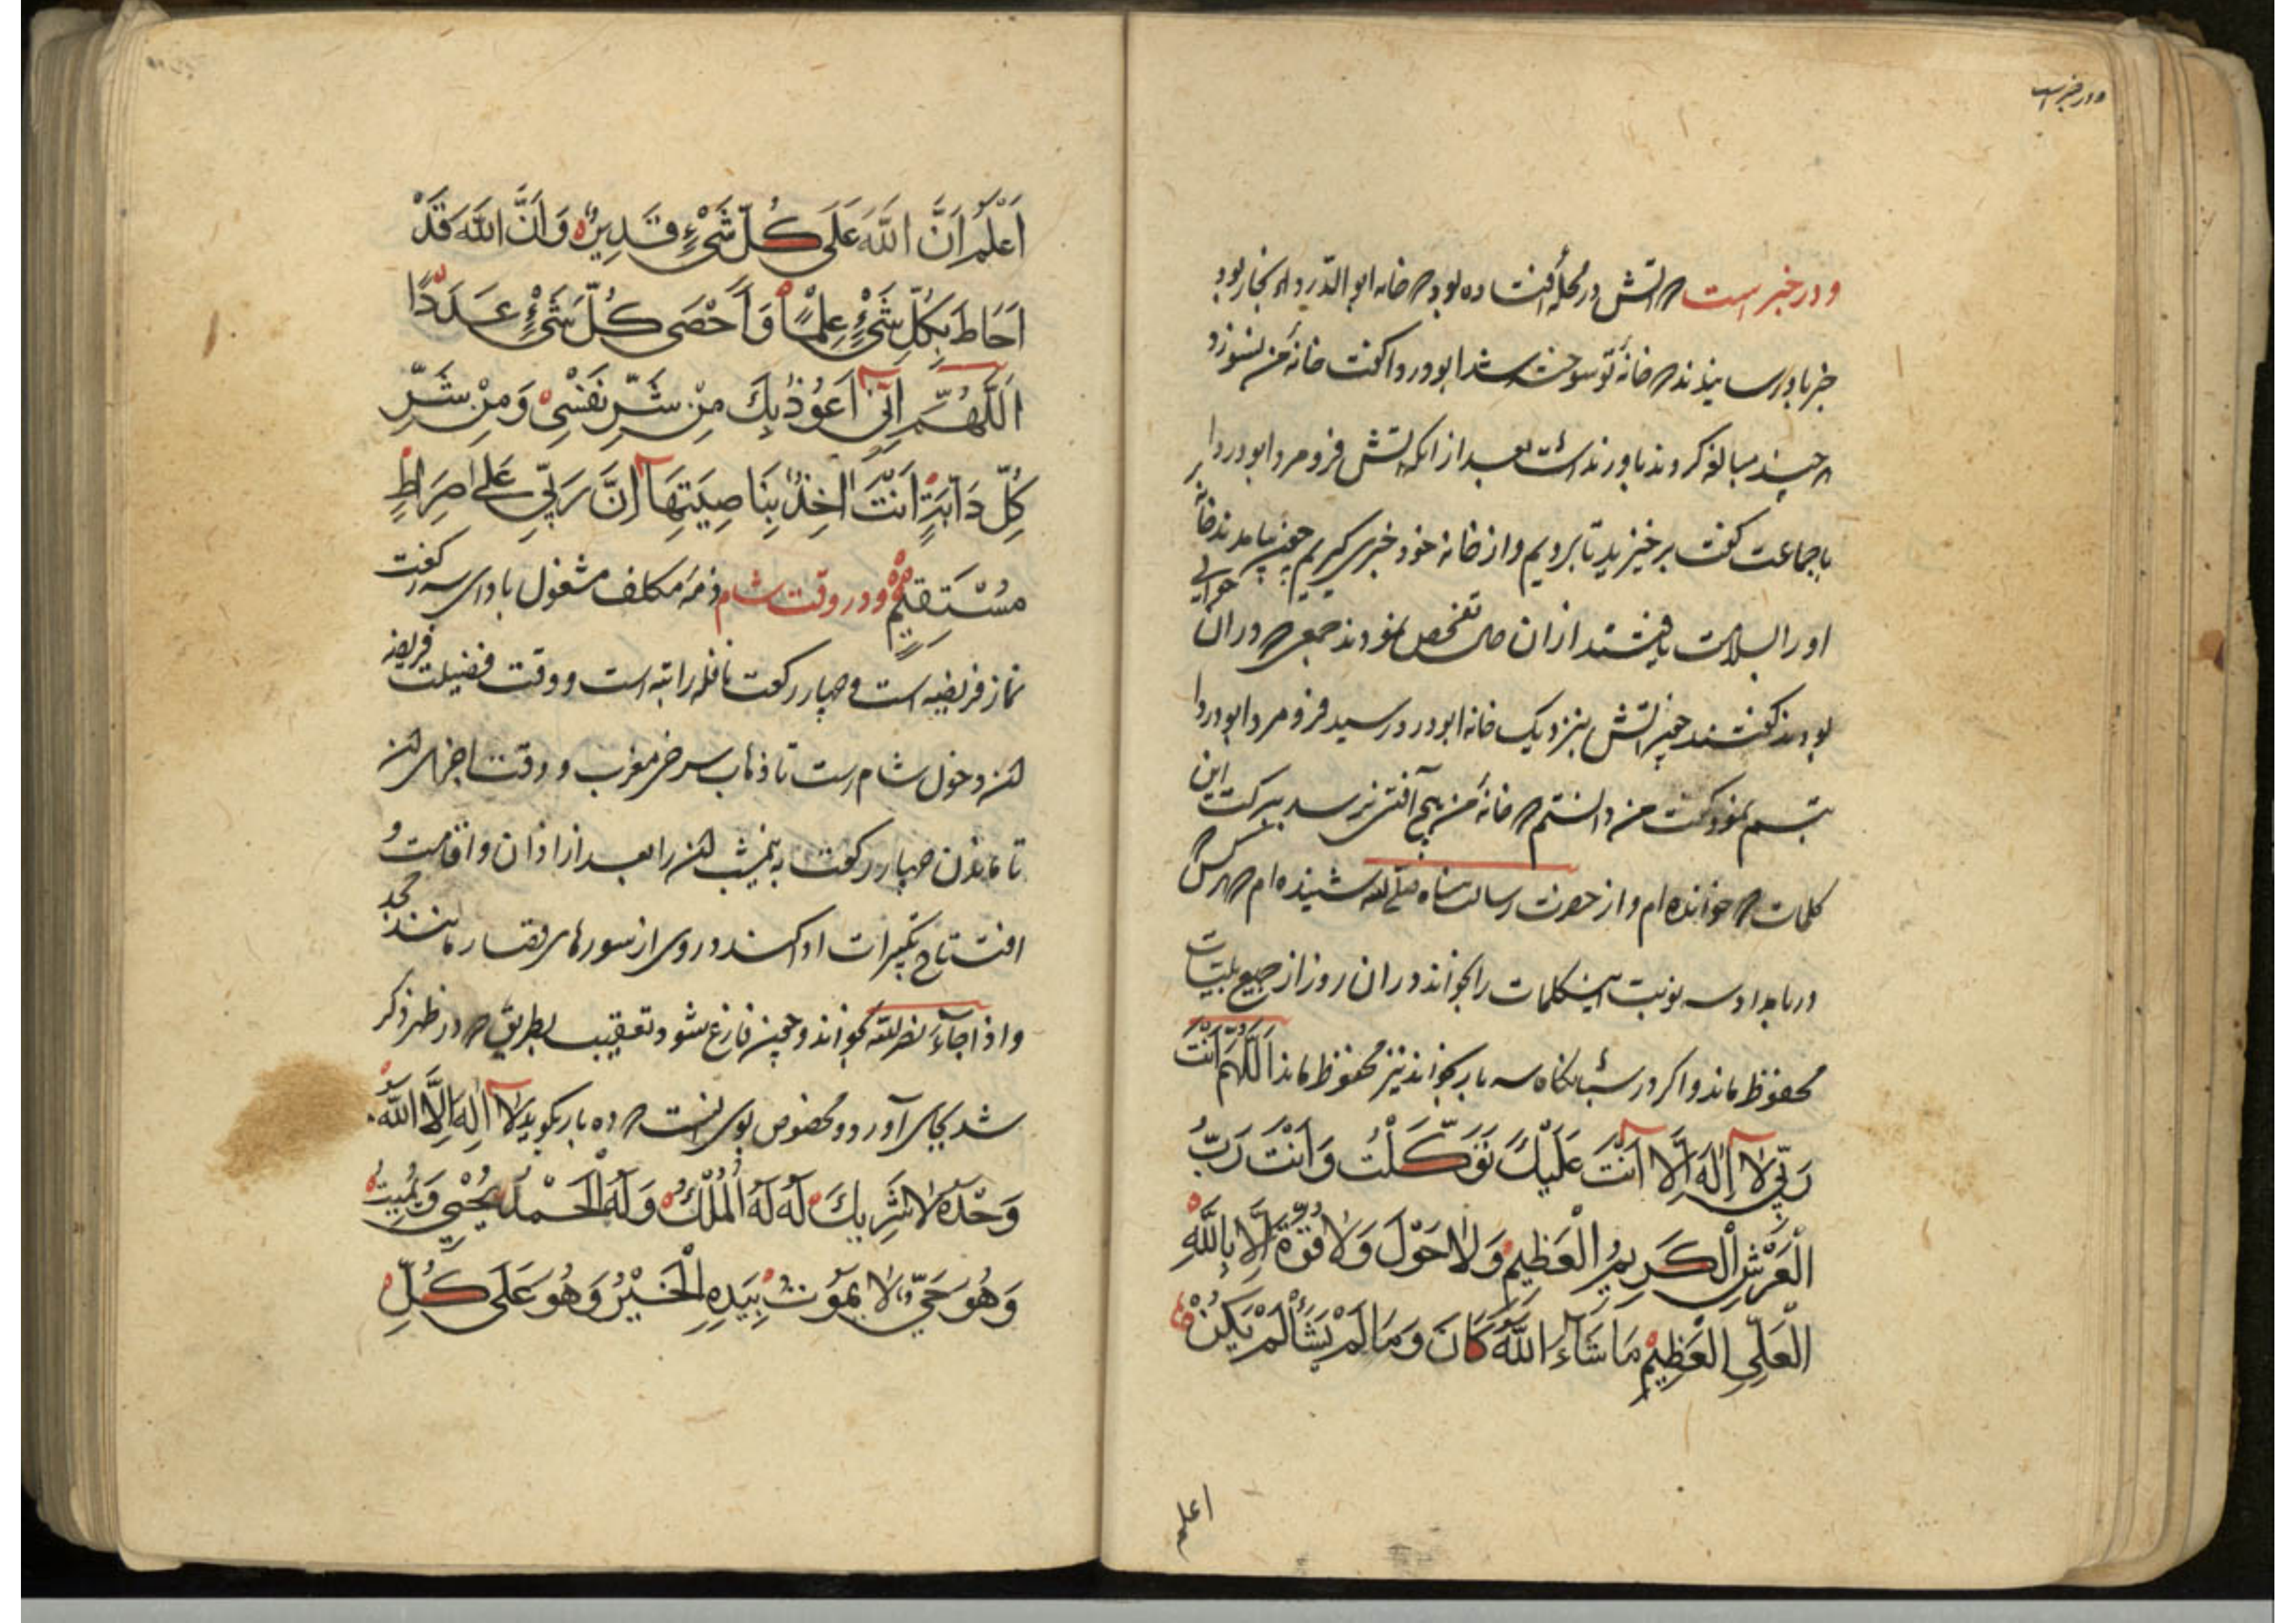 ودر خبر است
ودر خبر است که آتش در محله افتاده بود که خانه ابو الدرداء آنجا بود
خبر باو رسانیدند که خانهٔ تو سوخته شد ابو دردا گفت خانهٔ من نسوزد
هر چند مبالغه کردند باور نداشت بعد از آنکه آتش فرو مرد ابو دردا
با جماعت گفت بر خیزید تا برویم و از خانه خود خبری گیریم چون بیامدند خانهٔ
او را بسلامت یافتند از آن حال تفحص نمودند جمعی که در آن حوالی
بودند گفتند چون آتش بنزدیک خانه ابو دردا رسید فرو مرد ابو دردا
تبسم نمود گفت من دانستم که خانهٔ من هیچ آفتی نرسد ببرکت این
کلمات که خوانده ام و از حضرت رسالت پناه صلی الله شنیده ام که هر کس
در بامداد سه نوبت این کلمات را بخواند در آن روز از جمیع بلیات
محفوظ ماند و اگر در شبانگاه سه بار بخواند نیز محفوظ ماند اَللّٰهُمَّ اَنْتَ
رَبِّي لَا اِلٰهَ اِلَّا اَنْتَ عَلَيْكَ تَوَكَّلْتُ وَاَنْتَ رَبُّ
الْعَرْشِ الْكَرِيمِ الْعَظِيمِ وَلَا حَوْلَ وَلَا قُوَّةَ اِلَّا بِاللّٰهِ
الْعَلِيِّ الْعَظِيْمِ مَا شَآءَ اللّٰهُ كَانَ وَمَا لَمْ يَشَأْ لَمْ يَكُنْ
اعلم
اَعْلَمُ اَنَّ اللّٰهَ عَلَى كُلِّ شَيْءٍ قَدِيْرٌ وَاَنَّ اللّٰهَ قَدْ
اَحَاطَ بِكُلِّ شَيْءٍ عِلْمًا وَاَحْصَى كُلَّ شَيْءٍ عَدَدًا
اَللّٰهُمَّ اِنِّي اَعُوْذُ بِكَ مِنْ شَرِّ نَفْسِيْ وَمِنْ شَرِّ
كُلِّ دَآبَّةٍ اَنْتَ اٰخِذٌ بِنَاصِيَتِهَا اِنَّ رَبِّيْ عَلٰى صِرَاطٍ
مُسْتَقِيْمٍ ودر وقت شام ذمهٔ مکلف مشغول بادای سه رکعت
نماز فریضه است و چهار رکعت نافله راتبه است و وقت فضیلت فریضه
آن دخول شام است تا ذهاب سرخی مغرب و وقت اجزای آن
تا ماندن چهار رکعت به نیمشب آن را بعد از اذان و اقامت و
افتتاح تکبیرات ادا کند و در وی از سورهای قصار مانند جحد
و اذا جآء نصر الله بخواند و چون فارغ شود تعقیب بطریق که در ظهر ذکر
شد بجای آورد و مخصوص بوی آنست که ده بار بگوید لَآ اِلٰهَ اِلَّا اللّٰهُ
وَحْدَهُ لَا شَرِيكَ لَهُ لَهُ الْمُلْكُ وَلَهُ الْحَمْدُ يُحْيِيْ وَيُمِيتُ
وَهُوَ حَيٌّ لَا يَمُوْتُ بِيَدِهِ الْخَيْرُ وَهُوَ عَلَى كُلِّ